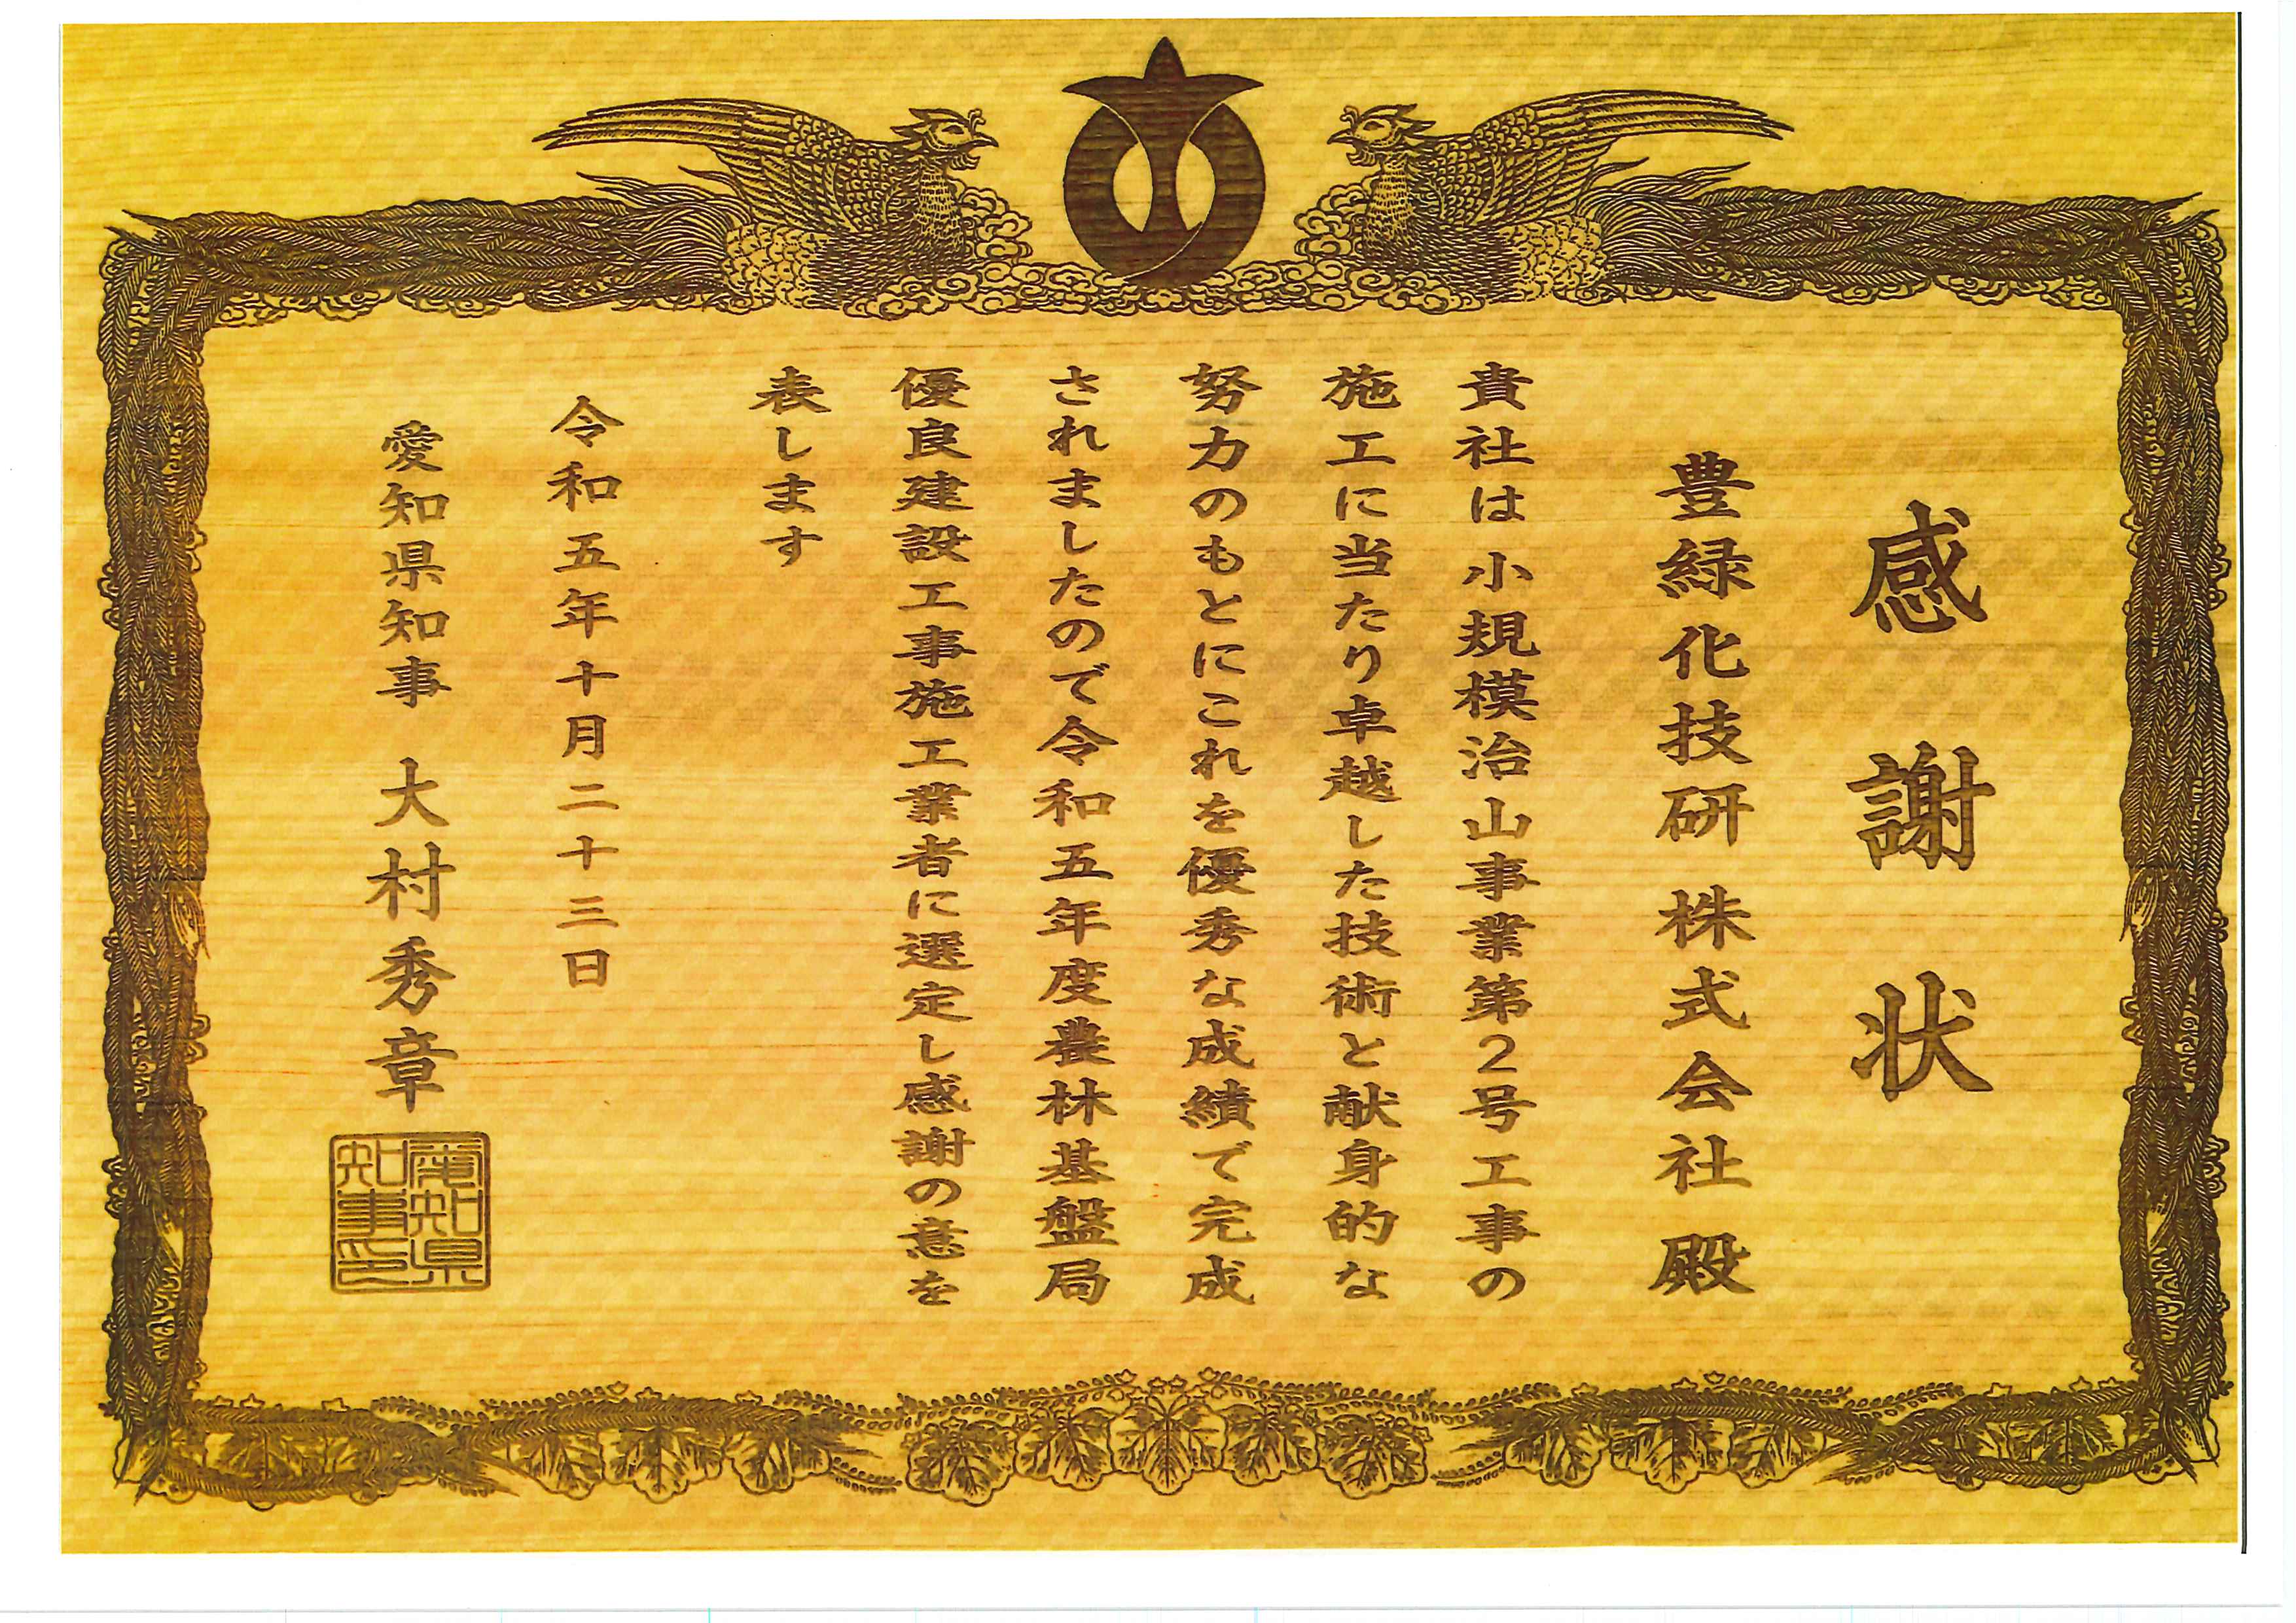 感謝状
豊緑化技研 株式会社 殿
貴社は小規模治山事業第2号工事の
施工に当たり卓越した技術と献身的な
努力のもとにこれを優秀な成績で完成
されましたので令和五年度農林基盤局
優良建設工事施工業者に選定し感謝の意を
表します
令和五年十月二十三日
愛知県知事 大村秀章
愛知県
知事印